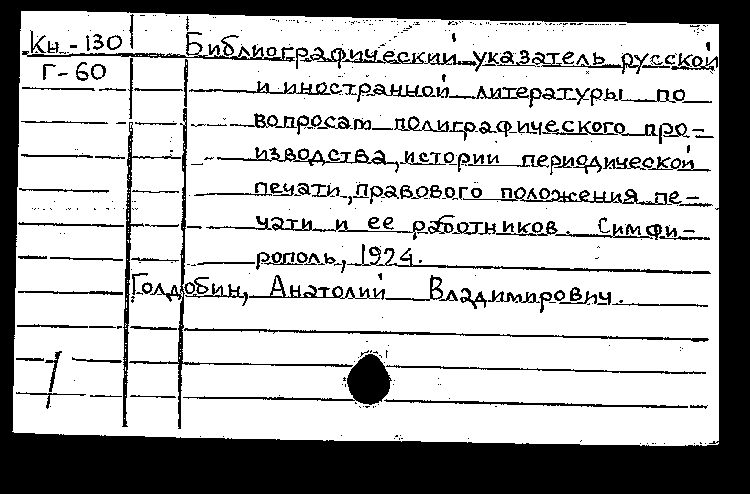 Кн-130 Библиографический указатель русской
Г-60 и иностранной литературы по
вопросам полиграфического про-
изводства, истории периодической
печати, правового положения пе-
чати и ее работников. Симфи-
рополь, 1924.
Голдобин, Анатолий Владимирович.